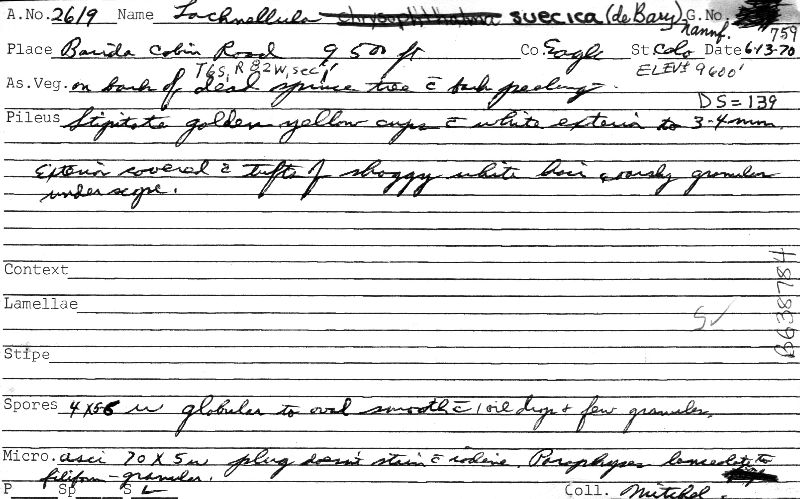 A.No. 2619 Name Lachnellula suecica (de Bary) G.No.
Nannf. 759
Place Barida Cobin Road 9500 ft Co. Eagle St Colo Date 6-13-70
T6S, R 82W, sec 1 ELEV± 9600'
As.Veg. on bark of dead spruce tree c̄ bark peeling.
DS=139
Pileus Stipitate golden yellow cups c̄ white exterior to 3-4 mm.
Exterior covered c̄ tufts of shaggy white hair coarsly granular
under scope.
Context
Lamellae
S✓
B638784
Stipe
Spores 4 X 5 u globular to oval smooth c̄ 1 oil drop + few granules.
Micro. asci 70 X 5 u plug doesn't stain c̄ iodine. Paraphyses lanceolate to
filiform - granular.
P Sp S L Coll. Mitchel.